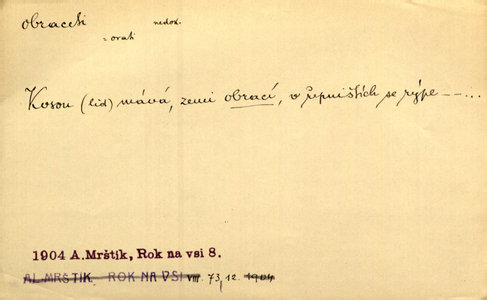 obraceti nedok.
= orati
Kosou (lid) mává, zemi obrací, v řepništích se rýpe – – ...
1904 A. Mrštík, Rok na vsi 8.
AL. MRŠTIK, ROK NA VSI VIII. 73, 12. 1904